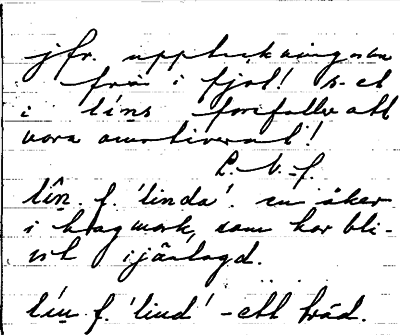 jfr. uppteckningarna
från i fjol! s-et
i líns förefaller att
vara omotiverat!
L. V-f.
lîn. f. 'linda'. en åker
i skogmark, som har bli-
vit ijänlagd.
lín f. 'lind' - ett träd.